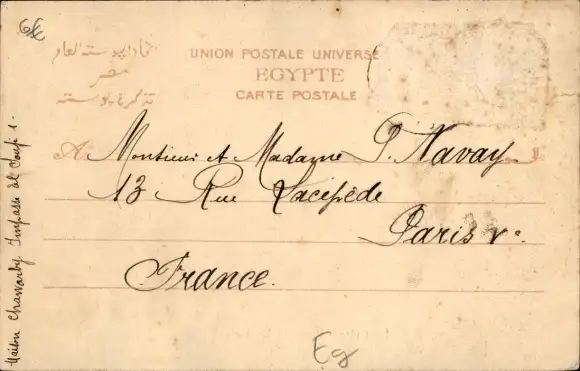 اتحاد البوسته العام
مصر
تذكرة بوسته
UNION POSTALE UNIVERSE
EGYPTE
CARTE POSTALE
A Monsieur et Madame P. Navay
13 Rue Lacepède
Paris Ve
France.
Eg
Maison Chawarby Impasse